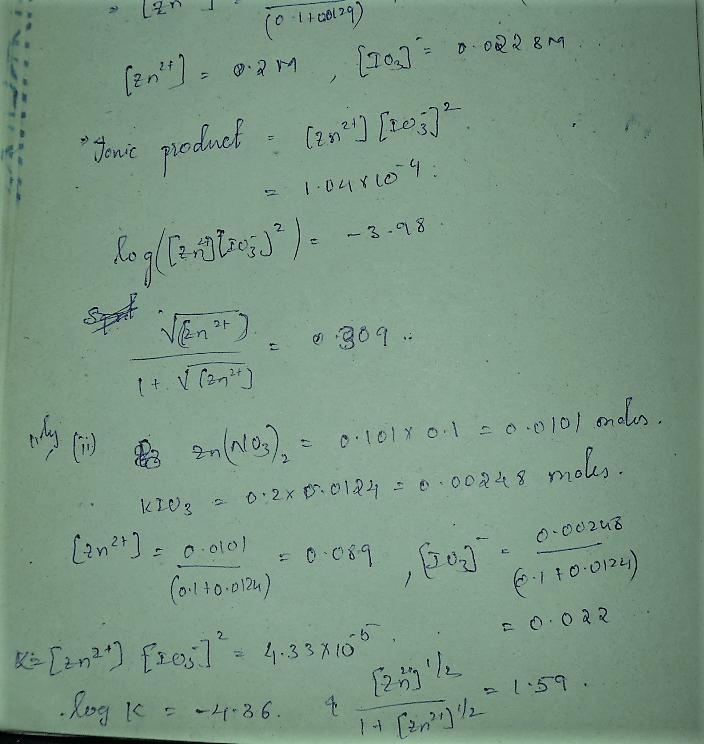 = [Zn
(0.1+0.0129)
[Zn²⁺] = 0.2 M , [IO₃]⁻ = 0.0228M .
Ionic product = [Zn²⁺] [IO₃⁻]²
= 1.04×10⁻⁴ .
log([Zn²⁺][IO₃⁻]²) = -3.98 .
√[Zn²⁺] / 1+√[Zn²⁺] = 0.309 ..
(ii) Zn(NO₃)₂ = 0.101 × 0.1 = 0.0101 moles.
KIO₃ = 0.2 × 0.0124 = 0.00248 moles.
[Zn²⁺] = 0.0101 / (0.1+0.0124) = 0.089 , [IO₃]⁻ = 0.00248 / (0.1+0.0124)
= 0.022
K = [Zn²⁺] [IO₃⁻]² = 4.33×10⁻⁵ .
log K = -4.36 . & [Zn²⁺]^1/2 / 1+[Zn²⁺]^1/2 = 1.59 .